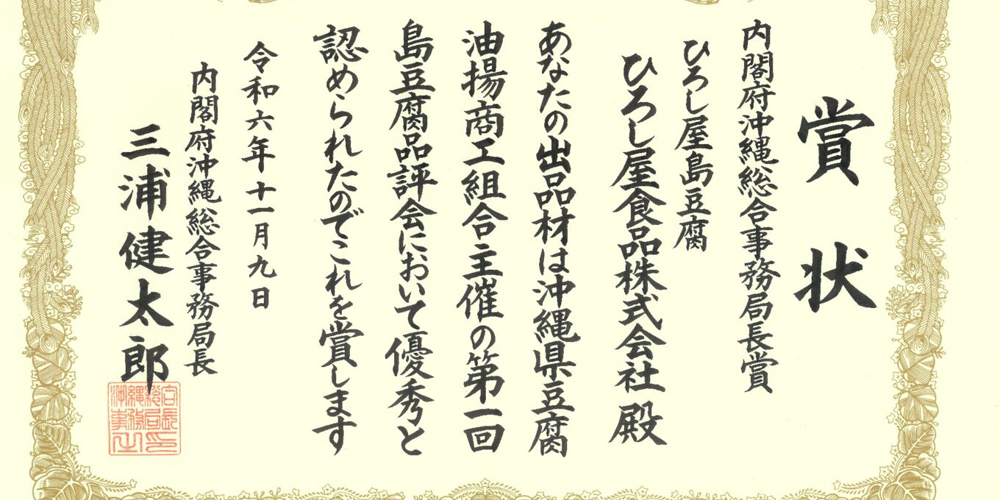 賞状
内閣府沖縄総合事務局長賞
ひろし屋島豆腐
ひろし屋食品株式会社 殿
あなたの出品材は沖縄県豆腐
油揚商工組合主催の第一回
島豆腐品評会において優秀と
認められたのでこれを賞します
令和六年十一月九日
内閣府沖縄総合事務局長
三浦健太郎